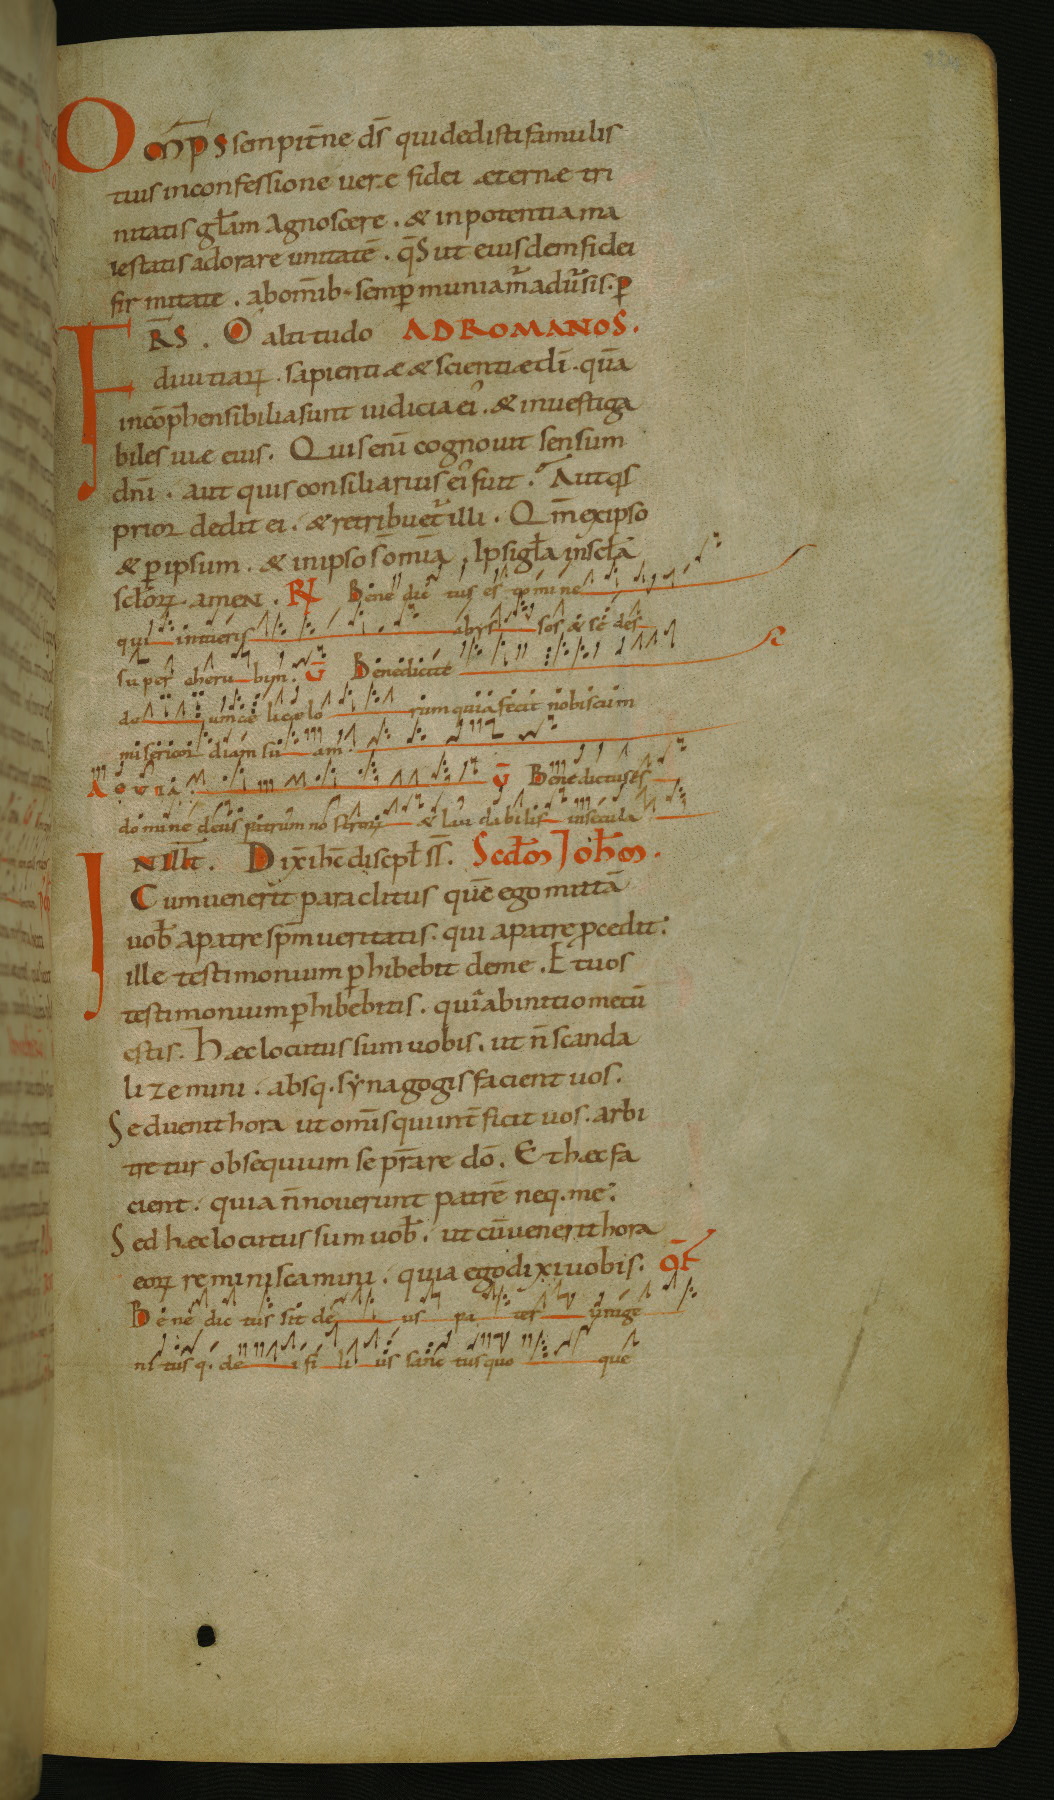 Om̄ps sempit̄ne d̄s qui dedisti famulis
tuis in confessione uerae fidei aeternae tri
nitatis gl̄am agnoscere . & in potentia ma
iestatis adorare unitatē . q̄s ut eiusdem fidei
firmitate . ab om̄ib; semp muniam̄ adūsis . p
FR̄S . O altitudo AD ROMANOS .
diuitiarꝝ . sapientiae & scientiae dī . quā
incōp̄hensibilia sunt iudicia ei' . & inuestiga
biles uiae eius . Quis enī cognouit sensum
dn̄i . aut quis consiliarius ei' fuit . Aut q̄s
prior dedit ei . & retribuet̄ illi . Qm̄ ex ipso
& p ipsum . & in ipso s̄ om̄ia . Ipsi gl̄a in sc̄la
sc̄lorꝝ . amen . R̄ Benedictus es domine
qui intueris abyssos & sedes
super cherubim . V̄ Benedicite
deum caeli & lo rum quia fecit nobiscum
misericordiam suam .
Aouua . V̄ Benedictus es
domine deus patrum nostrorꝝ & laudabilis in secula .
IN ILL̄T . Dix̄ ih̄c discipl̄ s̄s . Sc̄dm Ioh̄m .
Cum uenerit paraclitus quē ego mittā
uob̄ a patre sp̄m ueritatis . qui a patre pcedit :
ille testimonium phibebit de me . Et uos
testimonium phibebitis . quia ab initio mecū
estis . Haec locutus sum uobis . ut n̄ scanda
lizemini . absq . synagogis facient uos .
Sed uenit hora ut om̄is qui int̄ficit uos . arbi
tretur obsequium se p̄stare dō . Et haec fa
cient . quia n̄ nouerunt patrē neq . me :
Sed haec locutus sum uob̄ . ut cū uenerit hora
eorꝝ reminiscamini . quia ego dixi uobis . Of̄
Benedictus sit deus pater unige
nitusq . dei filius sanctus quoque